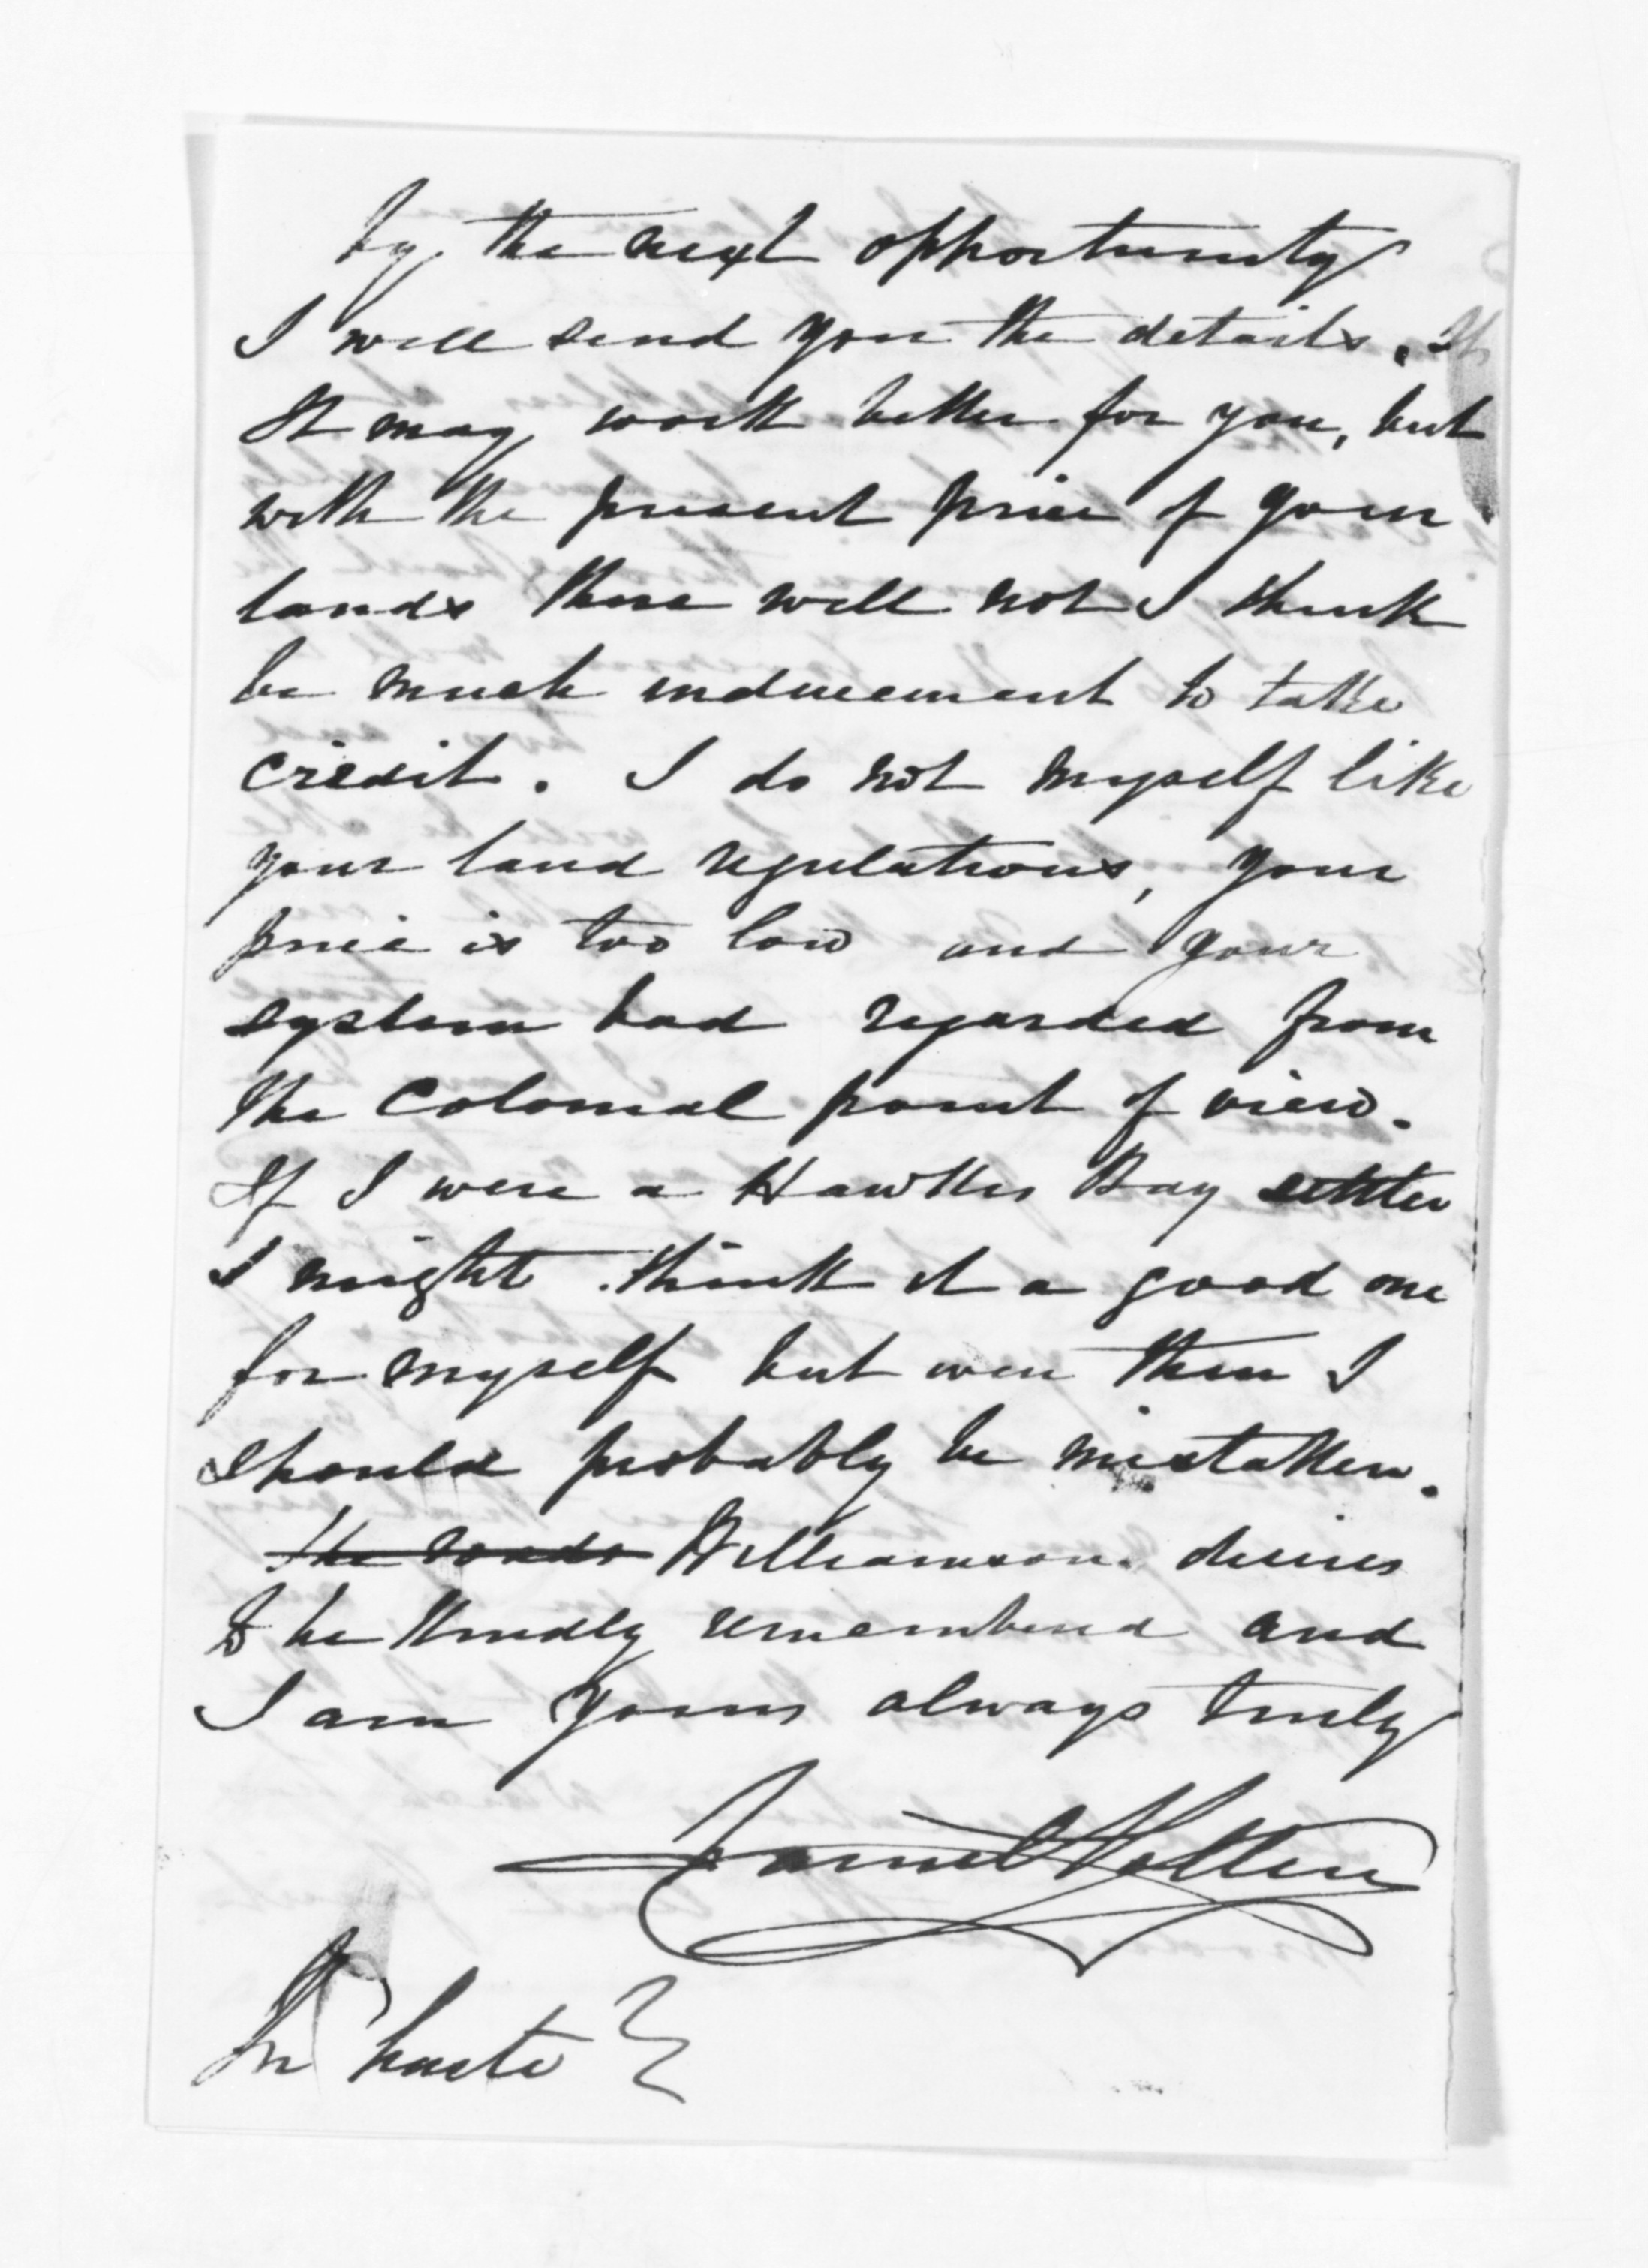 by the next opportunity
I will send you the details. It
It may work better for you, but
with the present price of your
lands there will not I think
be much inducement to take
credit. I do not myself like
your land regulations, your
price is too low and your
system bad regarded from
the Colonial point of view.
If I were a Hawkes Bay settler
I might think it a good one
for myself but even then I
should probably be mistaken.
the roads Williamson desires
to be kindly remembered and
I am yours always truly
Daniel Pollen
In haste